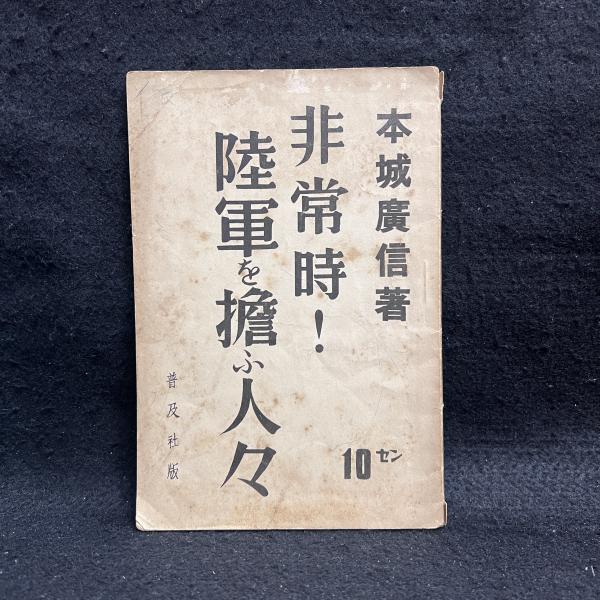 本城廣信著
非常時!
陸軍を擔ふ人々
普及社版
10セン